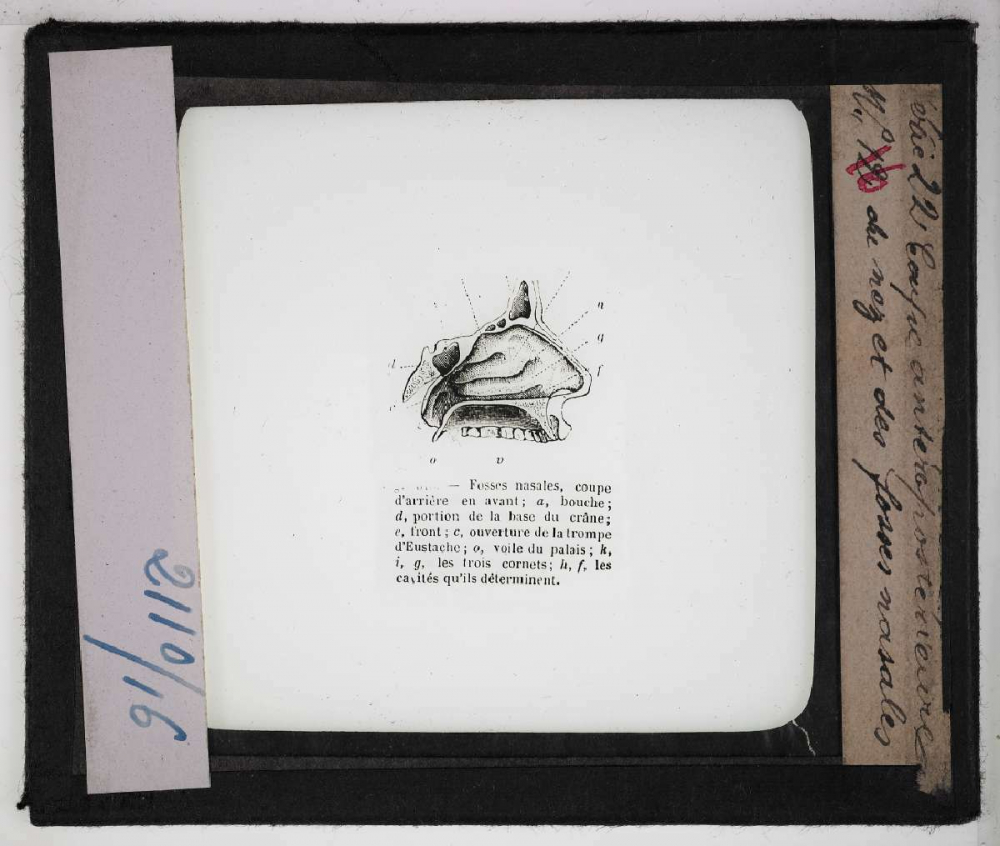 n
g
d
f
c
o v
— Fosses nasales, coupe
d'arrière en avant; a, bouche;
d, portion de la base du crâne;
e, front; c, ouverture de la trompe
d'Eustache; o, voile du palais; k,
i, g, les trois cornets; h, f, les
cavités qu'ils déterminent.
22 Coupe antéro postérieure
du nez et des fosses nasales
2110/
/16